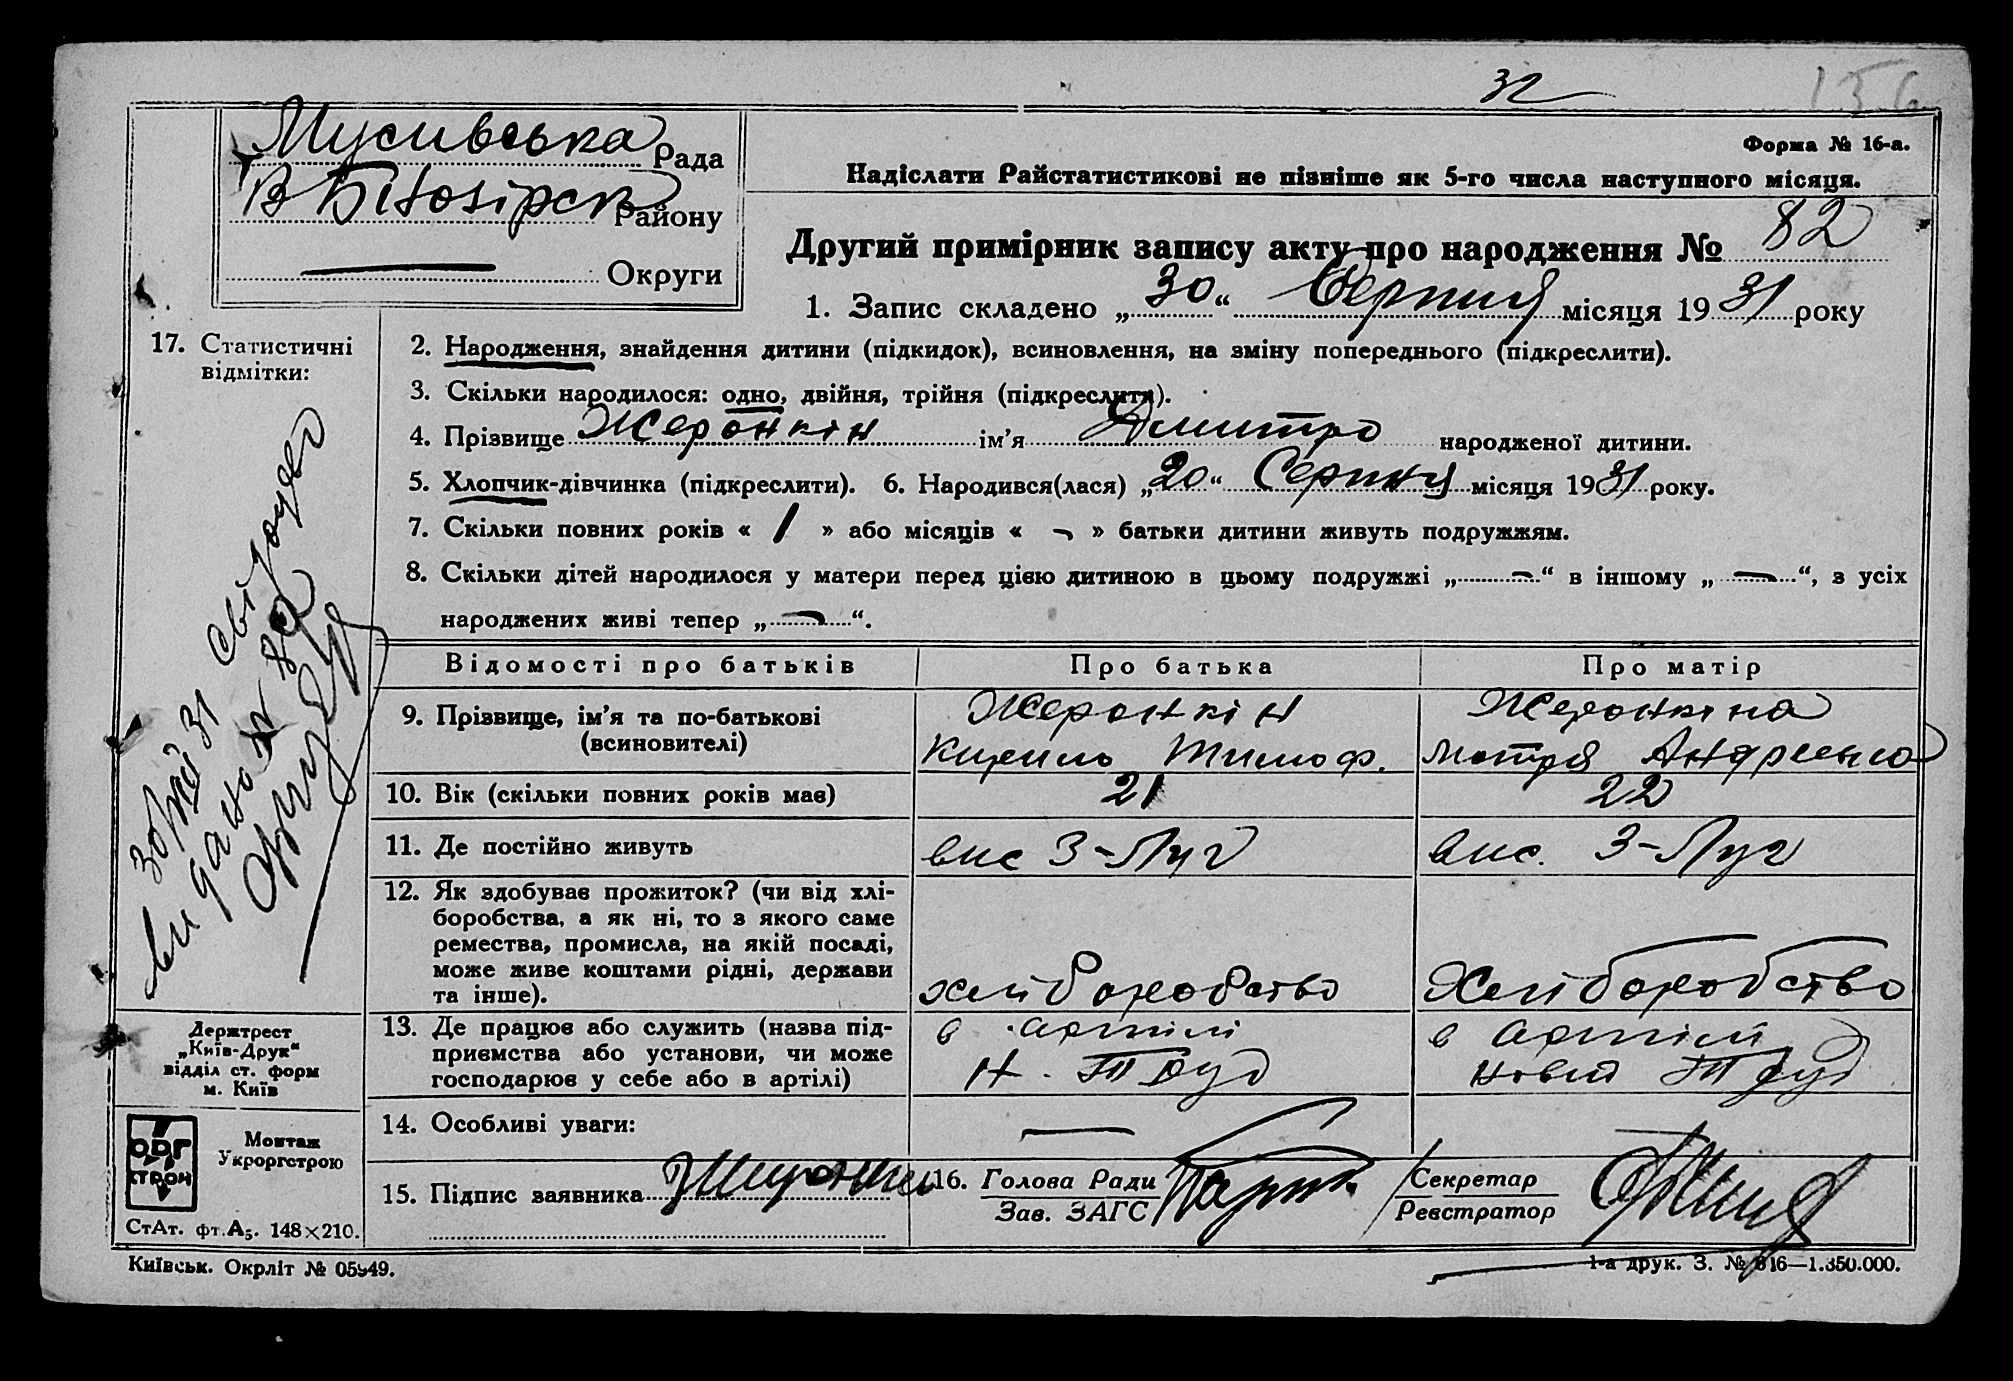 32
156
Форма № 16-а.
Мусивська Рада
В Білозірск Району
Округи
Надіслати Райстатистикові не пізніше як 5-го числа наступного місяця.
Другий примірник запису акту про народження № 82
1. Запис складено „30“ Серпня місяця 1931 року
17. Статистичні
відмітки:
2. Народження, знайдення дитини (підкидок), всиновлення, на зміну попереднього (підкреслити).
3. Скільки народилося: одно, двійня, трійня (підкреслити).
4. Прізвище Жеронкін ім’я Дмитро народженої дитини.
5. Хлопчик-дівчинка (підкреслити). 6. Народився(лася) „20“ Серпня місяця 1931 року.
7. Скільки повних років « 1 » або місяців « - » батьки дитини живуть подружжям.
8. Скільки дітей народилося у матери перед цією дитиною в цьому подружжі „-“ в іншому „-“, з усіх
народжених живі тепер „-“.
видано № 82
Відомості про батьків Про батька Про матір
9. Прізвище, ім’я та по-батькові
(всиновителі)
Жеронкін
Кирило Тимоф.
Жеронкіна
Мотря Андреевна
10. Вік (скільки повних років має) 21 22
11. Де постійно живуть вис З-Луг вис. З-Луг
12. Як здобуває прожиток? (чи від хлі-
боробства, а як ні, то з якого саме
ремества, промисла, на якій посаді,
може живе коштами рідні, держави
та інше).
хлиборобство Хлиборобство
13. Де працює або служить (назва під-
приємства або установи, чи може
господарює у себе або в артілі)
в артілі
Н. Труд
в артілі
новий Труд
14. Особливі уваги: —
15. Підпис заявника
16. Голова Ради
Зав. ЗАГС
Секретар
Реєстратор
Держтрест
„Київ-Друк“
відділ ст. форм
м. Київ
ОРГ
СТРОЙ
Монтаж
Укроргстрою
СтАт. фт.А₅. 148×210.
Київськ. Окрліт № 05949.
1-а друк. З. № 816—1.350.000.